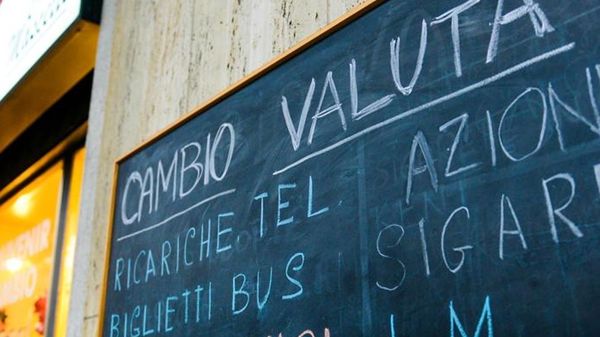 CAMBIO VALUTA
RICARICHE TEL.
BIGLIETTI BUS
AZIONI
SIGAR
CAMBIO